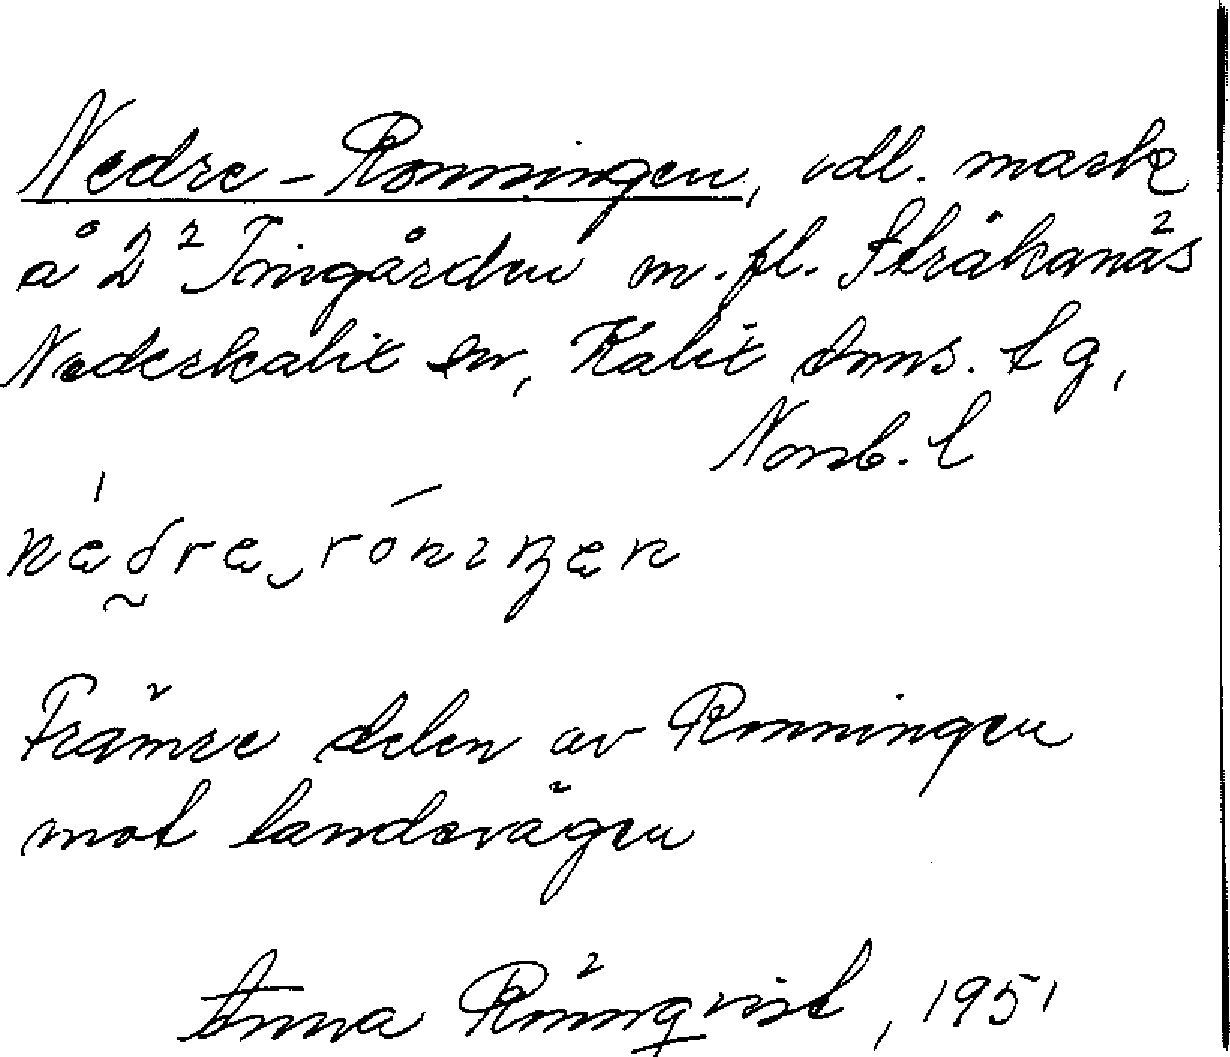 Nedre-Ronningen, odl. mark
å 2² Tingården m.fl. Stråkanäs
Nederkalix sn, Kalix doms. lg,
Norrb. l
Främre delen av Ronningen
mot landsvägen
Anna Rönnqvist, 1951